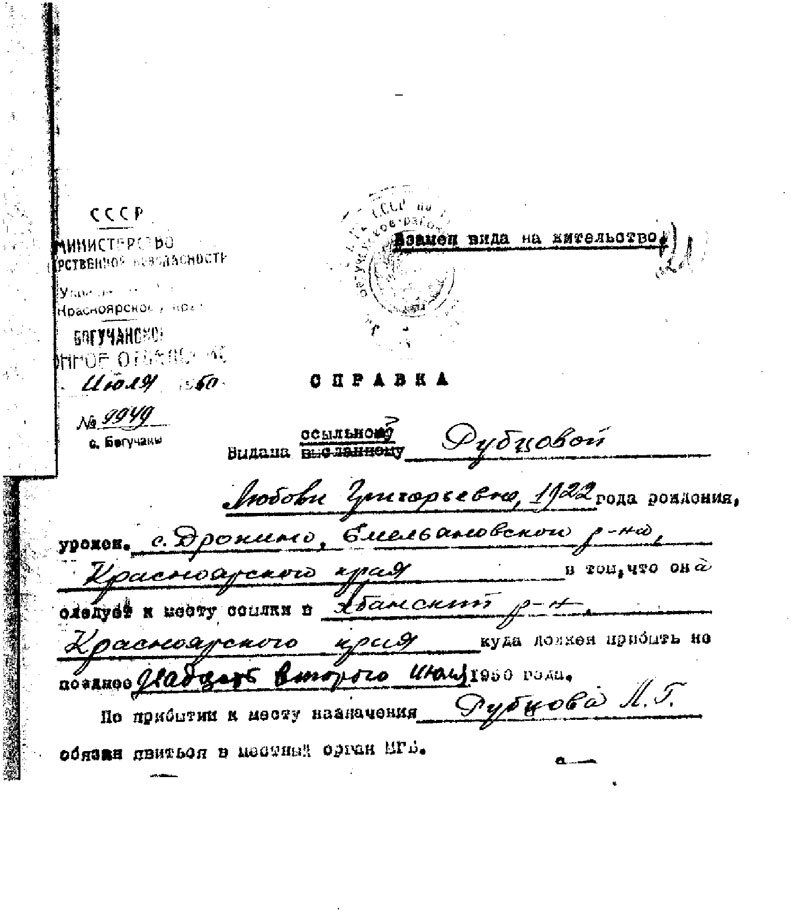 СССР
МИНИСТЕРСТВО
РСТВЕННОЙ БЕЗОПАСНОСТИ
Красноярско
БОГУЧАНСКО
ОННОЕ ОТДЕЛЕНИЕ
Июля 1950
№ 9949
с. Богучаны
Взамен вида на жительство
СПРАВКА
ссыльной
Выдана высланному Рубцовой
Любови Григорьевне, 1922 года рождения,
урожен. с. Дрокино, Емельановской р-на,
Красноярского края в том, что она
следует к месту ссылки в Абанский р-н,
Красноярского края куда должен прибыть не
позднее двадцать второго июля 1950 года.
По прибытии к месту назначения Рубцова Л.Г.
обязан явиться в местный орган МГБ.
а